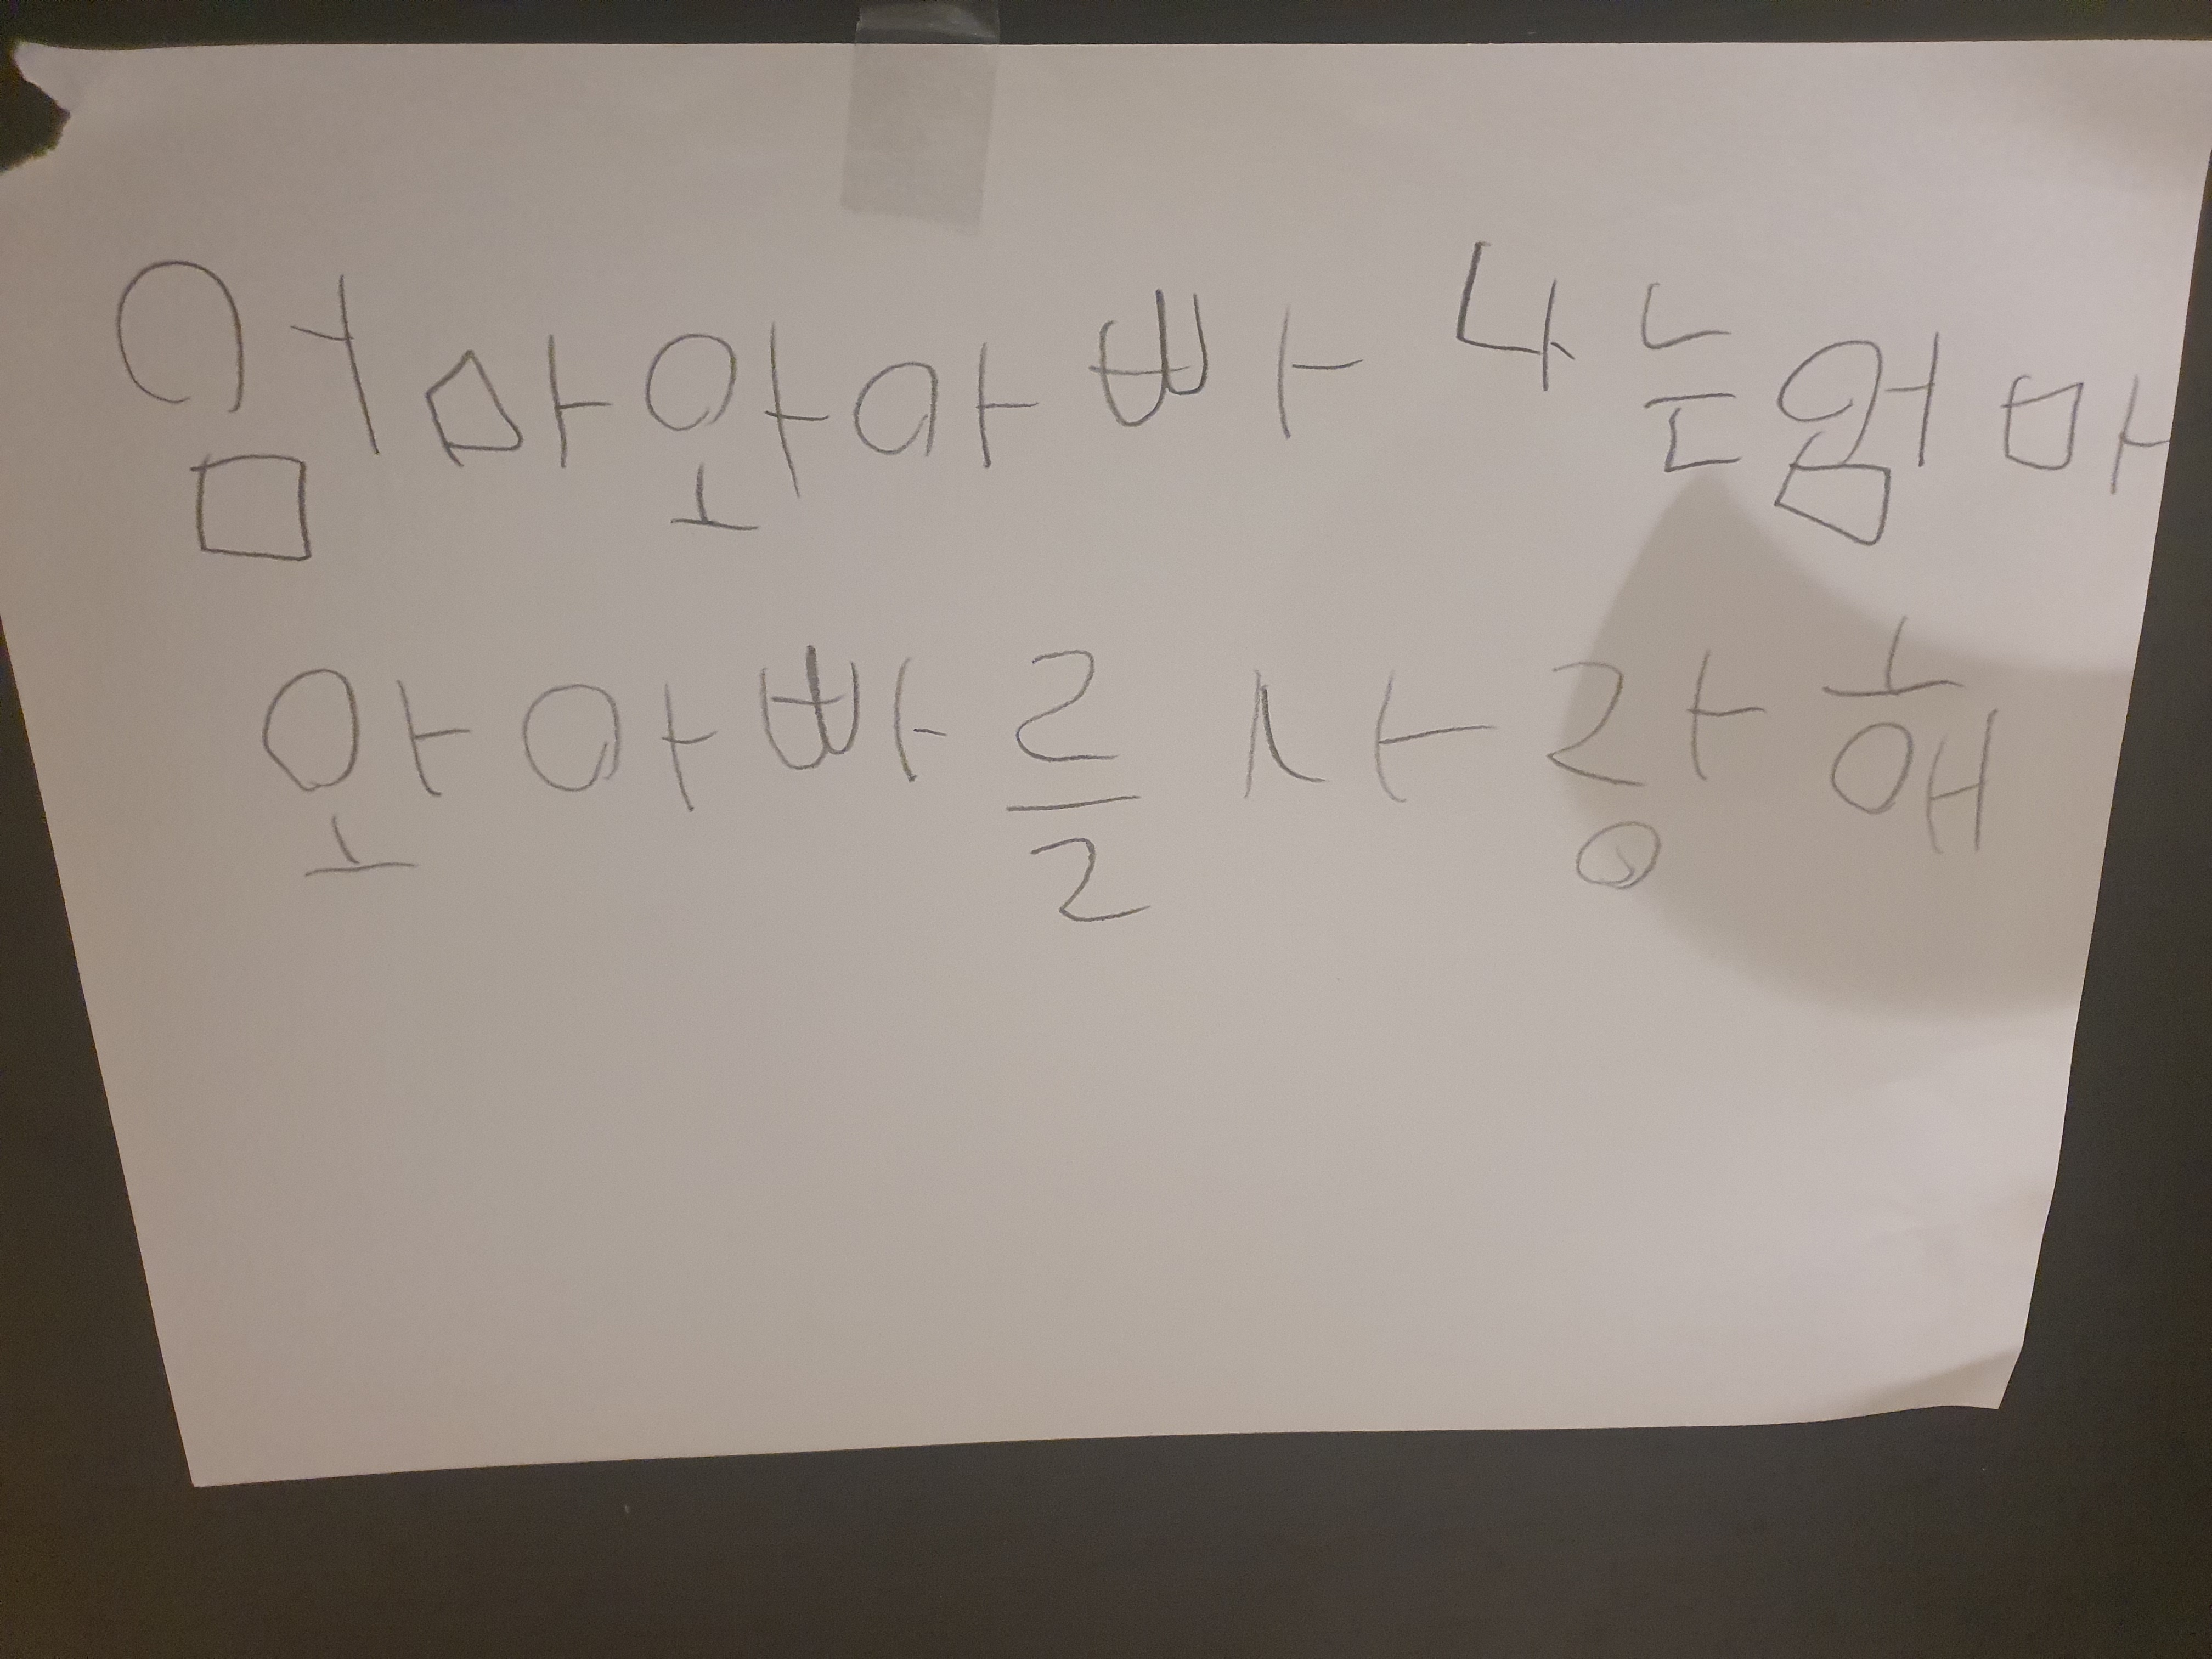 엄마와아빠 나는엄마
와아빠를 사랑해